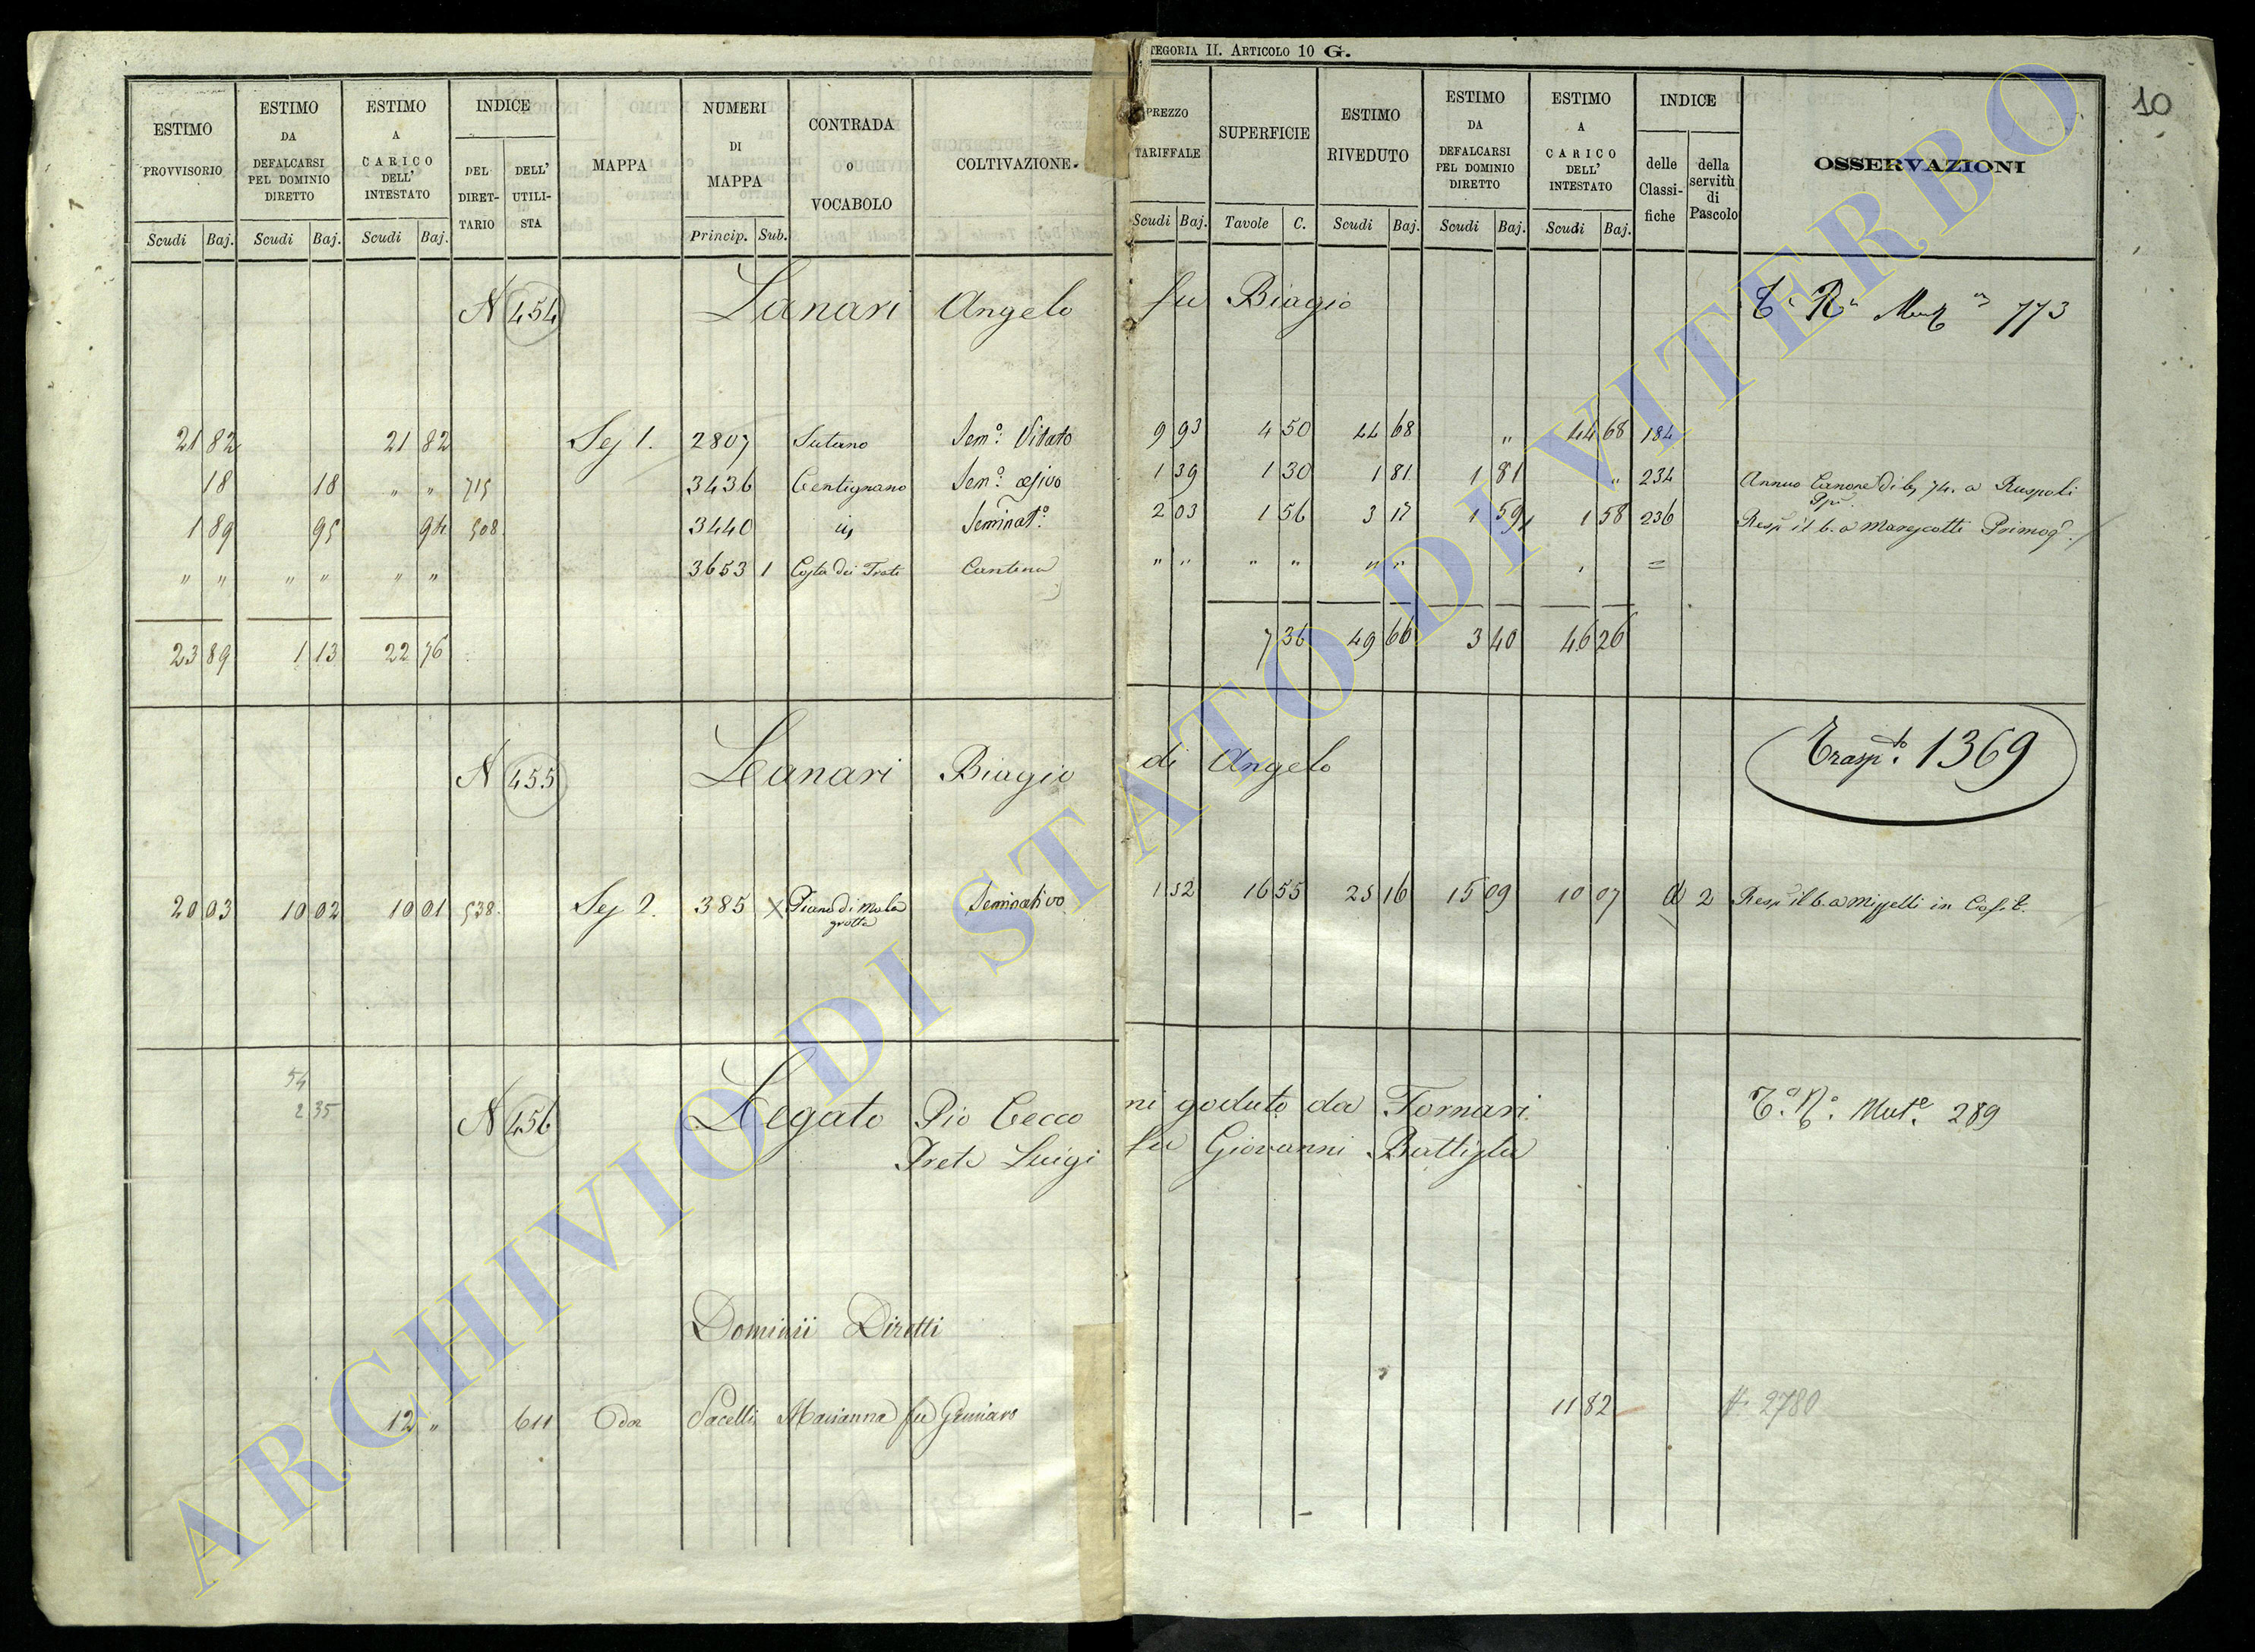 CATEGORIA II. ARTICOLO 10 G.
10
ESTIMO PROVVISORIO Scudi Baj. ESTIMO DA DEFALCARSI PEL DOMINIO DIRETTO Scudi Baj. ESTIMO A CARICO DELL' INTESTATO Scudi Baj. INDICE DEL DIRETTARIO DELL' UTILISTA MAPPA NUMERI DI MAPPA Princip. Sub. CONTRADA O VOCABOLO COLTIVAZIONE.
PREZZO TARIFFALE Scudi Baj. SUPERFICIE Tavole C. ESTIMO RIVEDUTO Scudi Baj. ESTIMO DA DEFALCARSI PEL DOMINIO DIRETTO Scudi Baj. ESTIMO A CARICO DELL' INTESTATO Scudi Baj. INDICE delle Classifiche della servitù di Pascolo OSSERVAZIONI
N 454 Lanari Angelo fu Biagio 773
21 82 21 82 Sez 1. 2807 Sutano Sem.º Vitato 9 93 4 50 44 68 " 44 68 184
18 18 " " 715 3436 Centignano Sem.º 1 39 1 30 1 81 1 81 " 234 Annuo Canone di 74. a Ruspoli
1 89 95 94 508 3440 Seminat.º 2 03 1 56 3 17 1 59 1 58 236 il b. a Marescotti Primog.
" " " " " " 3653 1 Costa dei Frati Cantina " " " " " " =
23 89 1 13 22 76 7 36 49 66 3 40 46 26
N 455 Lanari Biagio di Angelo Trasp.to 1369
20 03 10 02 10 01 538. Sez 2. 385 Piano di Mola grotta Seminativo 1 52 16 55 25 16 15 09 10 07 2 il b. a
54
2 35
N 456 Legato Pio Cecconi goduto da Fornari Mut.e 289
Prete Luigi fu Giovanni Battista
Dominii Diretti
12 " 611 Oda Sacelli Marianna fu Gennaro 11 82 2780
ARCHIVIO DI STATO DI VITERBO